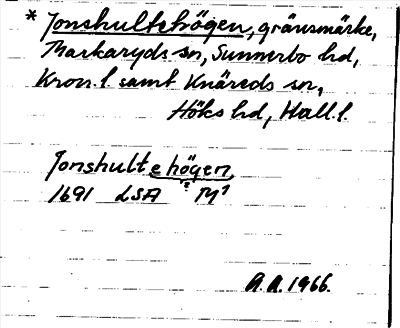 * Jonshultehögen, gränsmärke,
Markaryds sn, Sunnerbo hd,
Kron. l. samt Knäreds sn,
Höks hd, Hall. l.
Jonshultehögen
1691 LSA M¹
A.A. 1966.